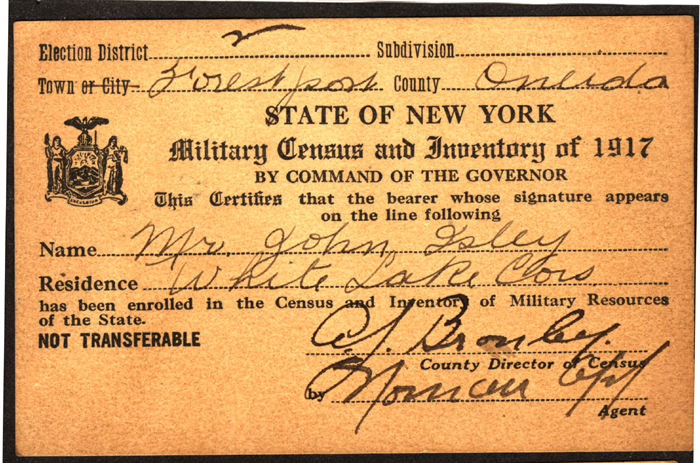 Election District 2 Subdivision
Town or City Forestport County Oneida
STATE OF NEW YORK
Military Census and Inventory of 1917
BY COMMAND OF THE GOVERNOR
This Certifies that the bearer whose signature appears
on the line following
Name Mr. John Isley
Residence White Lake Cors
has been enrolled in the Census and Inventory of Military Resources
of the State.
NOT TRANSFERABLE
County Director of Census
by Norman
Agent